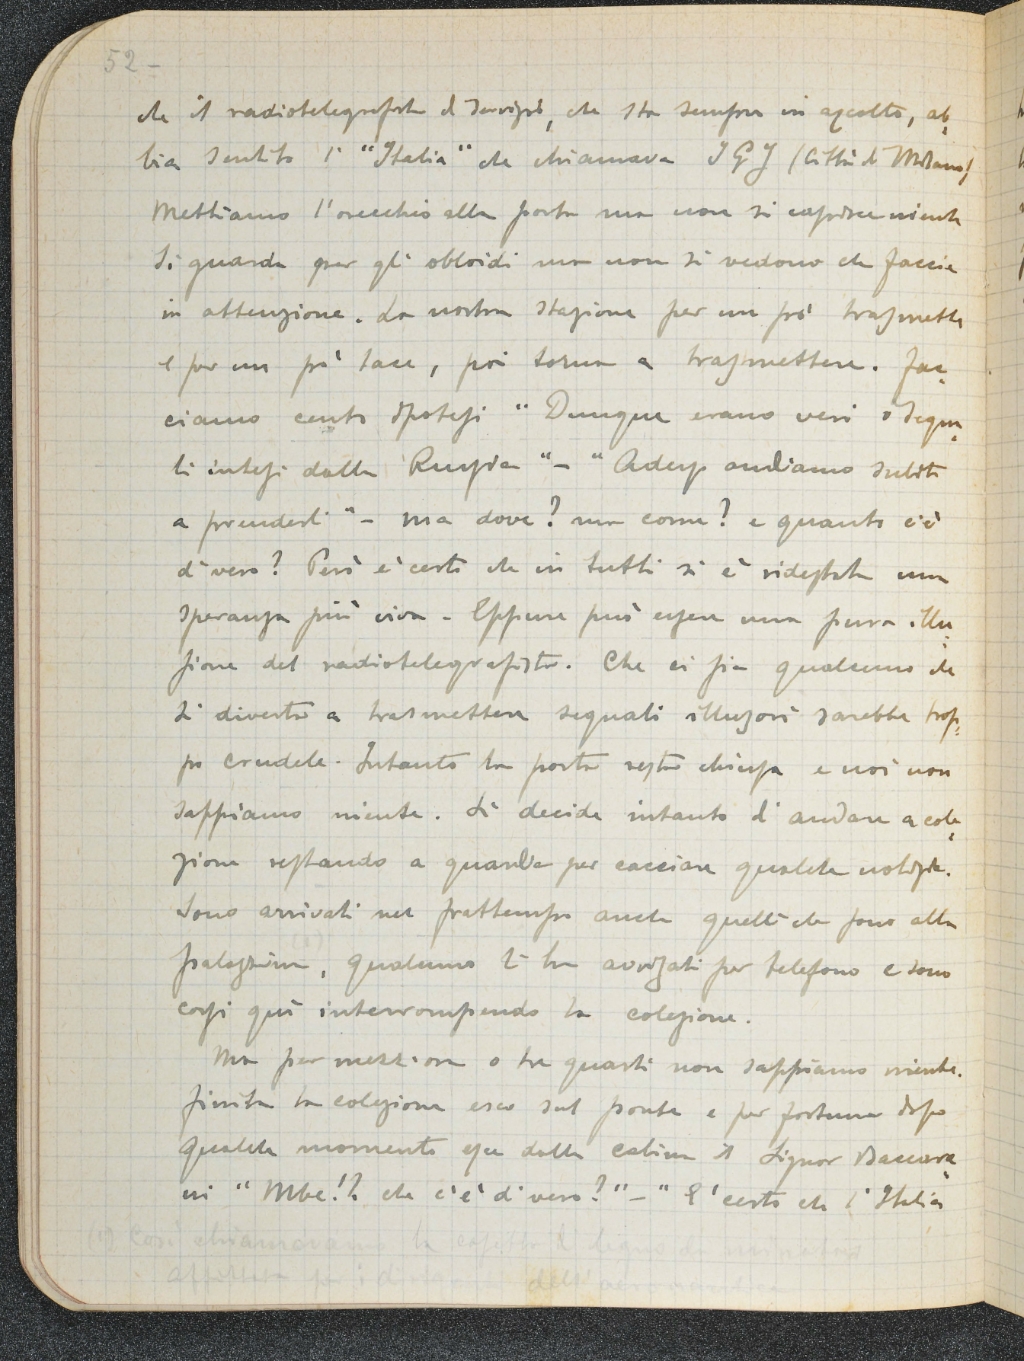 52 -
che il radiotelegrafista di servizio, che sta sempre in ascolto, ab-
bia sentito l' "Italia" che chiamava IGJ (Città di Milano)
Mettiamo l'orecchio alla porta ma non si capisce niente
Si guarda per gli obloidi ma non si vedono che faccie
in attenzione. La nostra stazione per un pò trasmette
e per un pò tace, poi torna a trasmettere. Fac-
ciamo cento ipotesi "Dunque erano veri i segna-
li intesi dalla Russia" - "Adesso andiamo subito
a prenderli" - ma dove? ma come? e quanto c'è
di vero? Però è certo che in tutti si è ridestata una
speranza più viva - Eppure può essere una pura illu-
sione del radiotelegrafista. Che ci sia qualcuno che
si diverta a trasmettere segnali illusori sarebbe trop-
po crudele. Intanto la porta resta chiusa e noi non
sappiamo niente. Si decide intanto di andare a cola-
zione restando a guardia per cacciare qualche notizia.
Sono arrivati nel frattempo anche quelli che sono alla
palazzina (1), qualcuno li ha avvisati per telefono e sono
corsi quì interrompendo la colezione.
Ma per mezz'ora o tre quarti non sappiamo niente.
Finita la colezione esco sul ponte e per fortuna dopo
qualche momento esce dalla cabina il Signor Baccara-
ni "Mbe!? che c'è di vero?" - "E' certo che l'Italia
(1) Così chiamavamo la di legno
dell'aeronautica